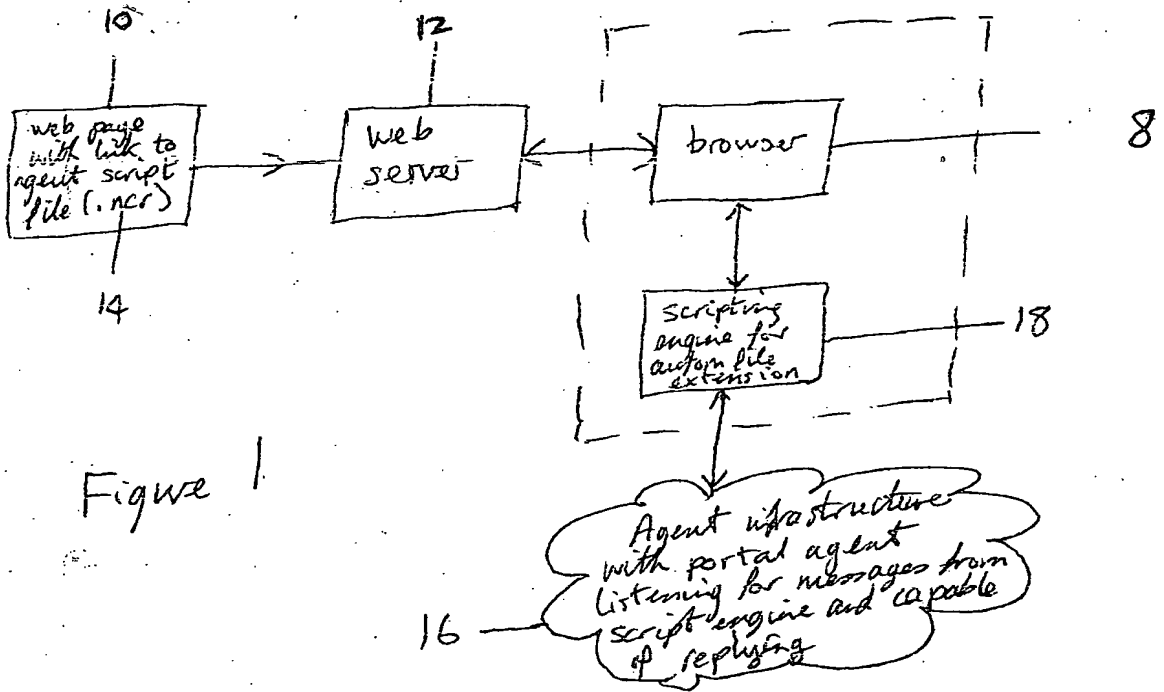 10
12
web page
with link to
agent script
file (.ncr)
web
server
browser
8
14
scripting
engine for
custom file
extension
18
Figure 1
Agent infrastructure
with portal agent
listening for messages from
script engine and capable
of replying
16